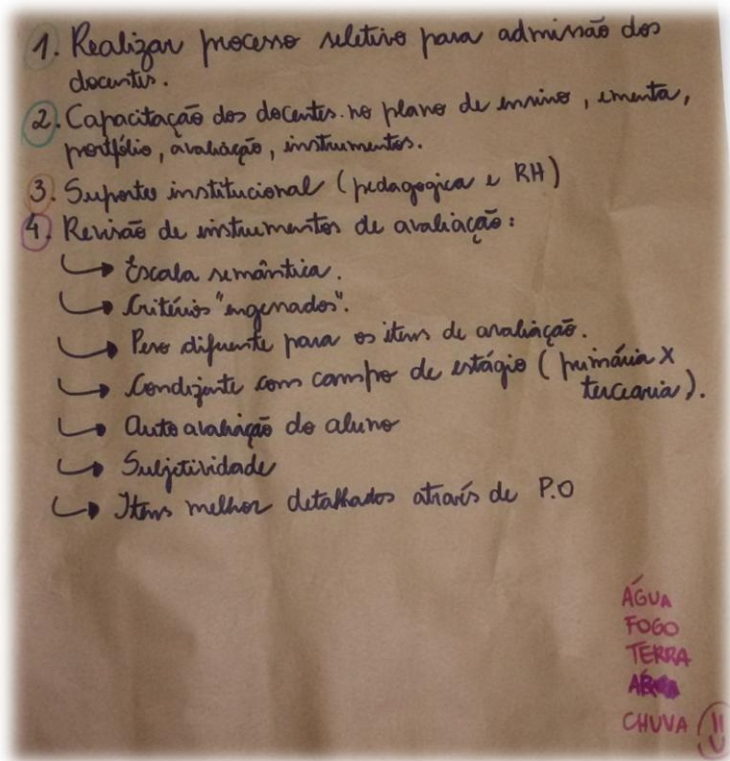 1. Realizar processo seletivo para admissão dos
docentes.
2. Capacitação dos docentes no plano de ensino, ementa,
portfólio, avaliação, instrumentos.
3. Suporte institucional (pedagogica e RH)
4. Revisão de instrumentos de avaliação:
Escala semântica.
Critérios "engenados".
Peso diferente para os itens de avaliação.
Condizente com campo de estágio (primária X
terceária).
Auto avaliação do aluno
Subjetividade
Itens melhor detalhados através de P.O
ÁGUA
FOGO
TERRA
CHUVA